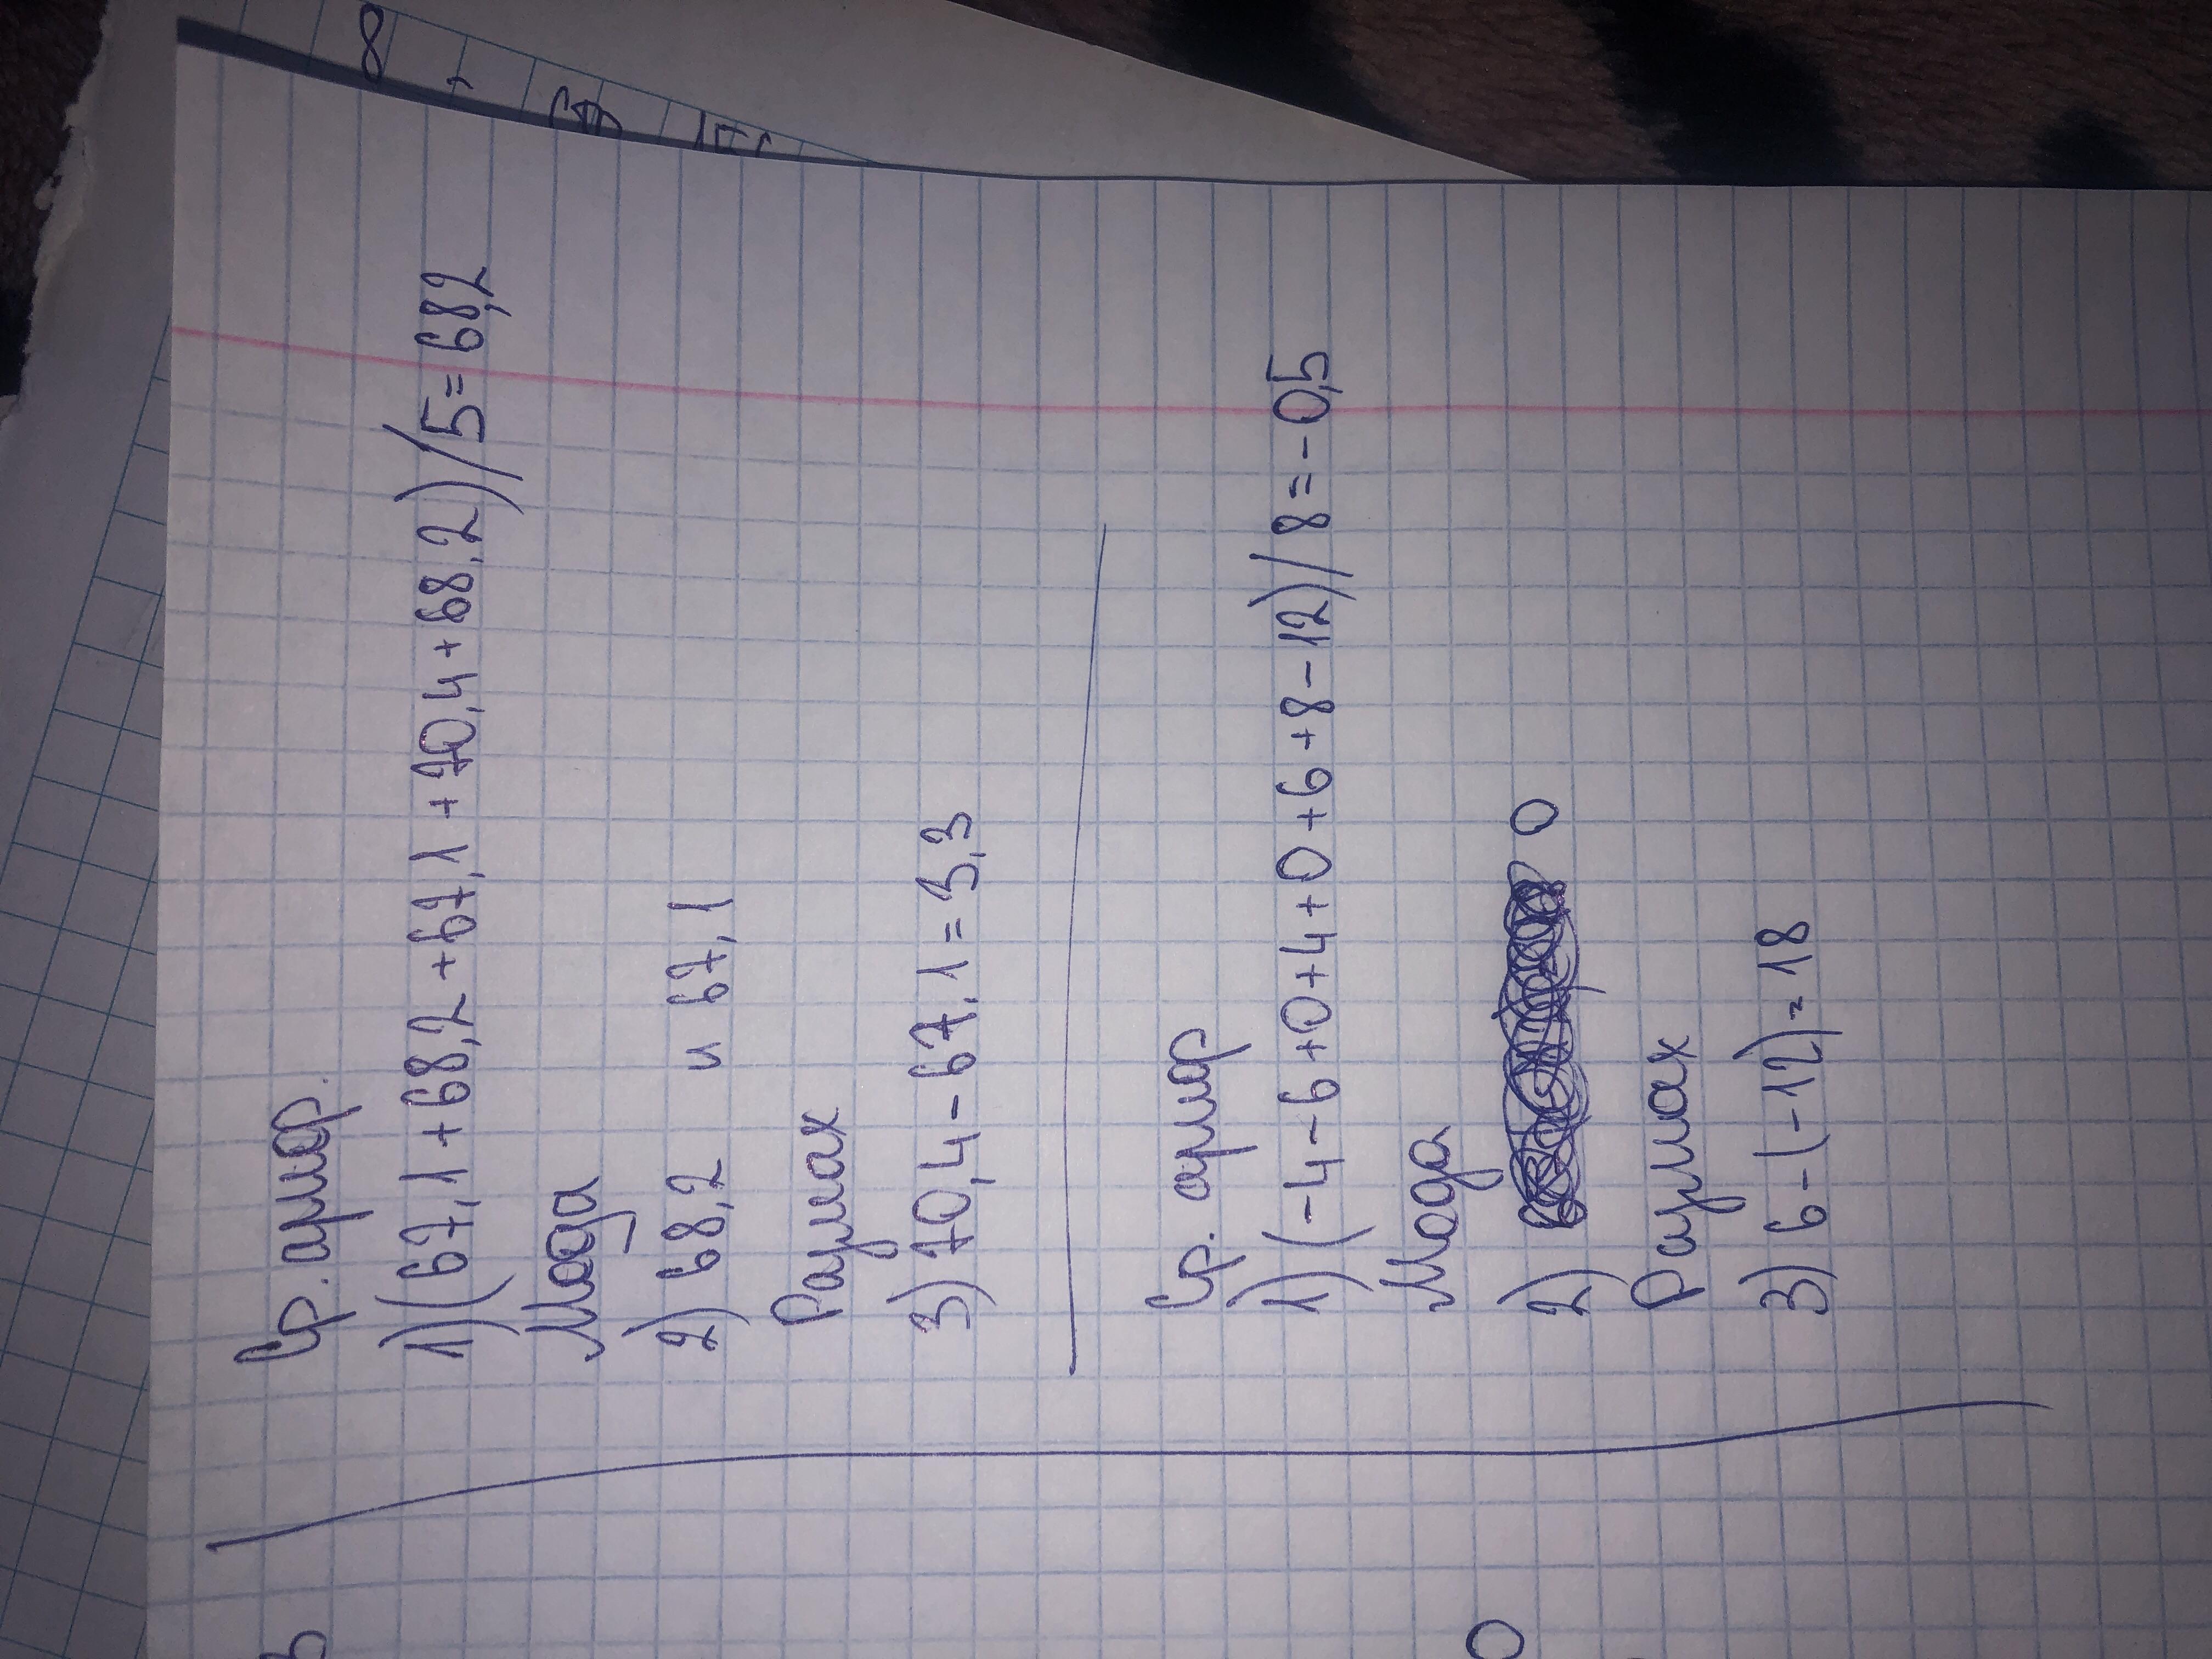 Ср. арифм.
1) (67,1 + 68,2 + 67,1 + 70,4 + 68,2) / 5 = 68,2
Мода
2) 68,2 и 67,1
Размах
3) 70,4 - 67,1 = 3,3
Ср. арифм
1) (-4 - 6 + 0 + 4 + 0 + 6 + 8 - 12) / 8 = -0,5
Мода
2) 0
Размах
3) 6 - (-12) = 18